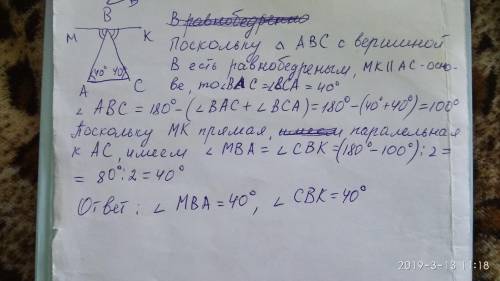 В равнобедренно
B
M K
40° 40°
A C
Поскольку △ ABC с вершиной
В есть равнобедреным, MK∥AC-осно-
ве, то ∠BAC=∠BCA = 40°
∠ ABC = 180° - (∠BAC + ∠BCA) = 180° - (40° + 40°) = 100°
Поскольку MK прямая, паралельная
к AC, имеем ∠ MBA = ∠ CBK = (180° - 100°) : 2 =
= 80° : 2 = 40°
Ответ : ∠ MBA = 40°, ∠ CBK = 40°
2019-3-13 11:18